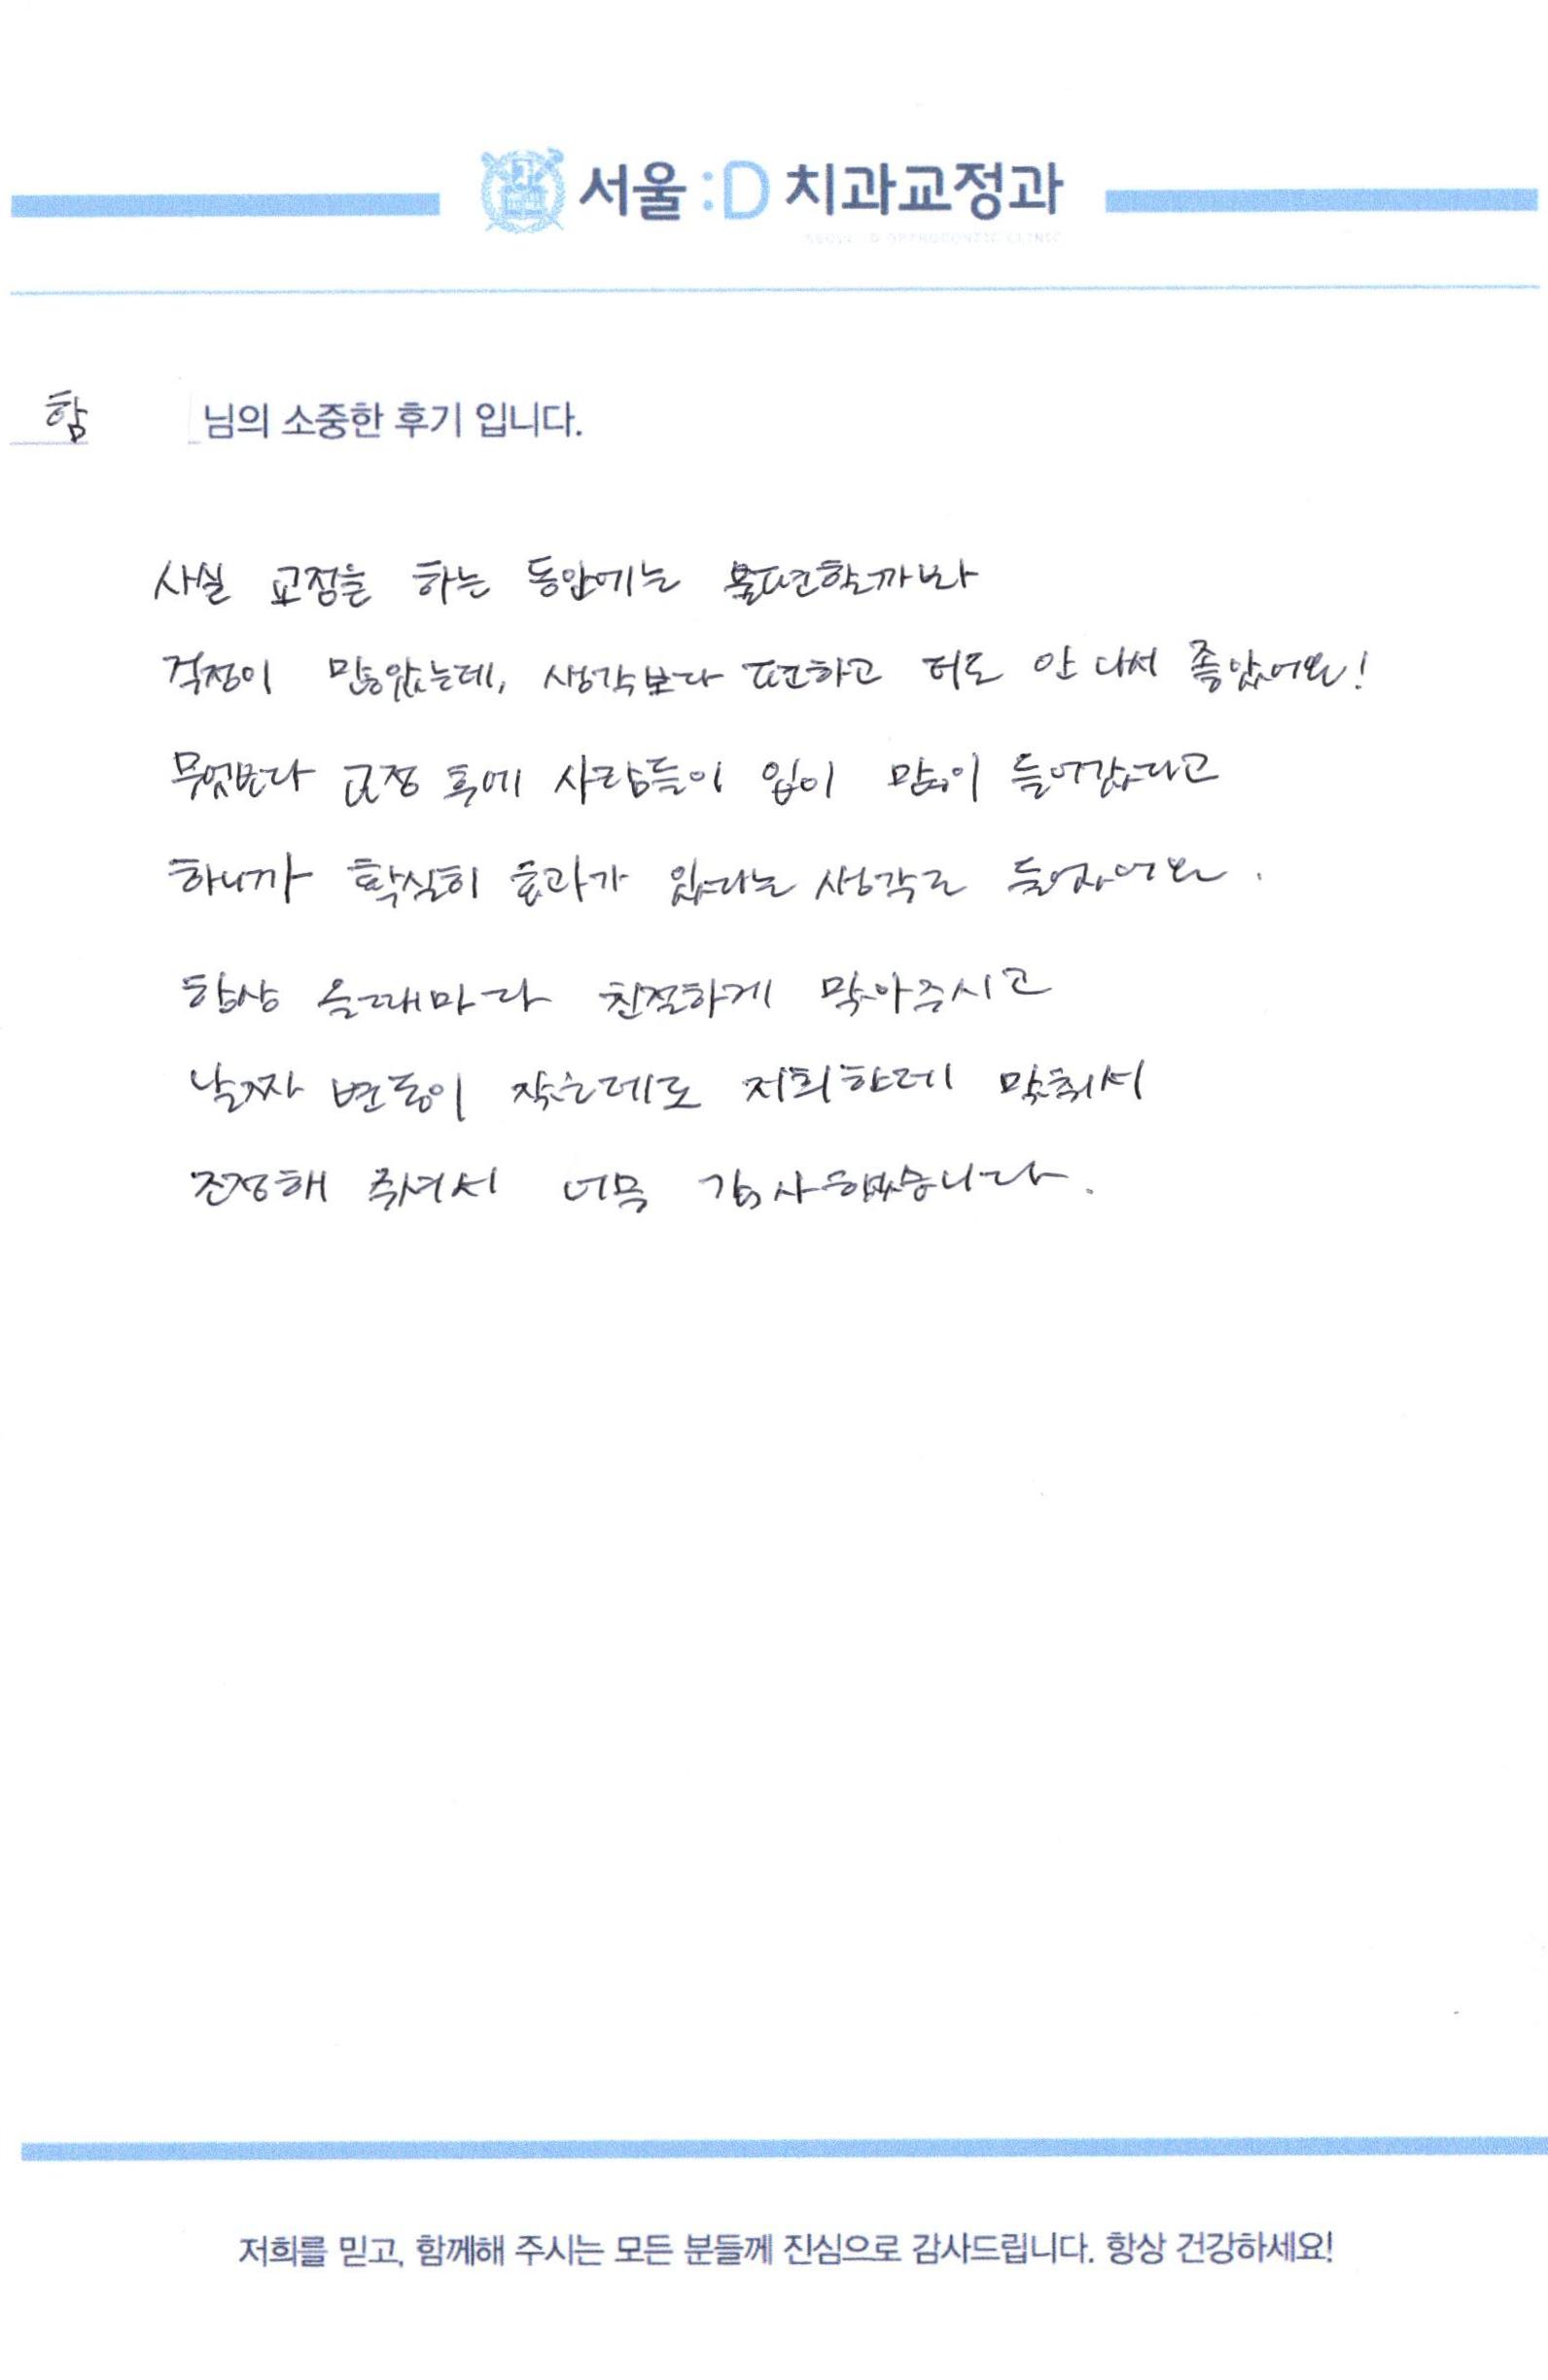 서울:D 치과교정과
SEOUL :D ORTHODONTIC CLINIC
함 님의 소중한 후기 입니다.
사실 교정을 하는 동안에는 불편할까봐
걱정이 많았는데, 생각보다 편하고 티도 안 나서 좋았어요!
무엇보다 교정 후에 사람들이 입이 많이 들어갔다고
하니까 확실히 효과가 있다는 생각도 들었어요.
항상 올때마다 친절하게 맞아주시고
날짜 변동이 잦은데도 저희한테 맞춰서
조정해 주셔서 너무 감사했습니다.
저희를 믿고, 함께해 주시는 모든 분들께 진심으로 감사드립니다. 항상 건강하세요!